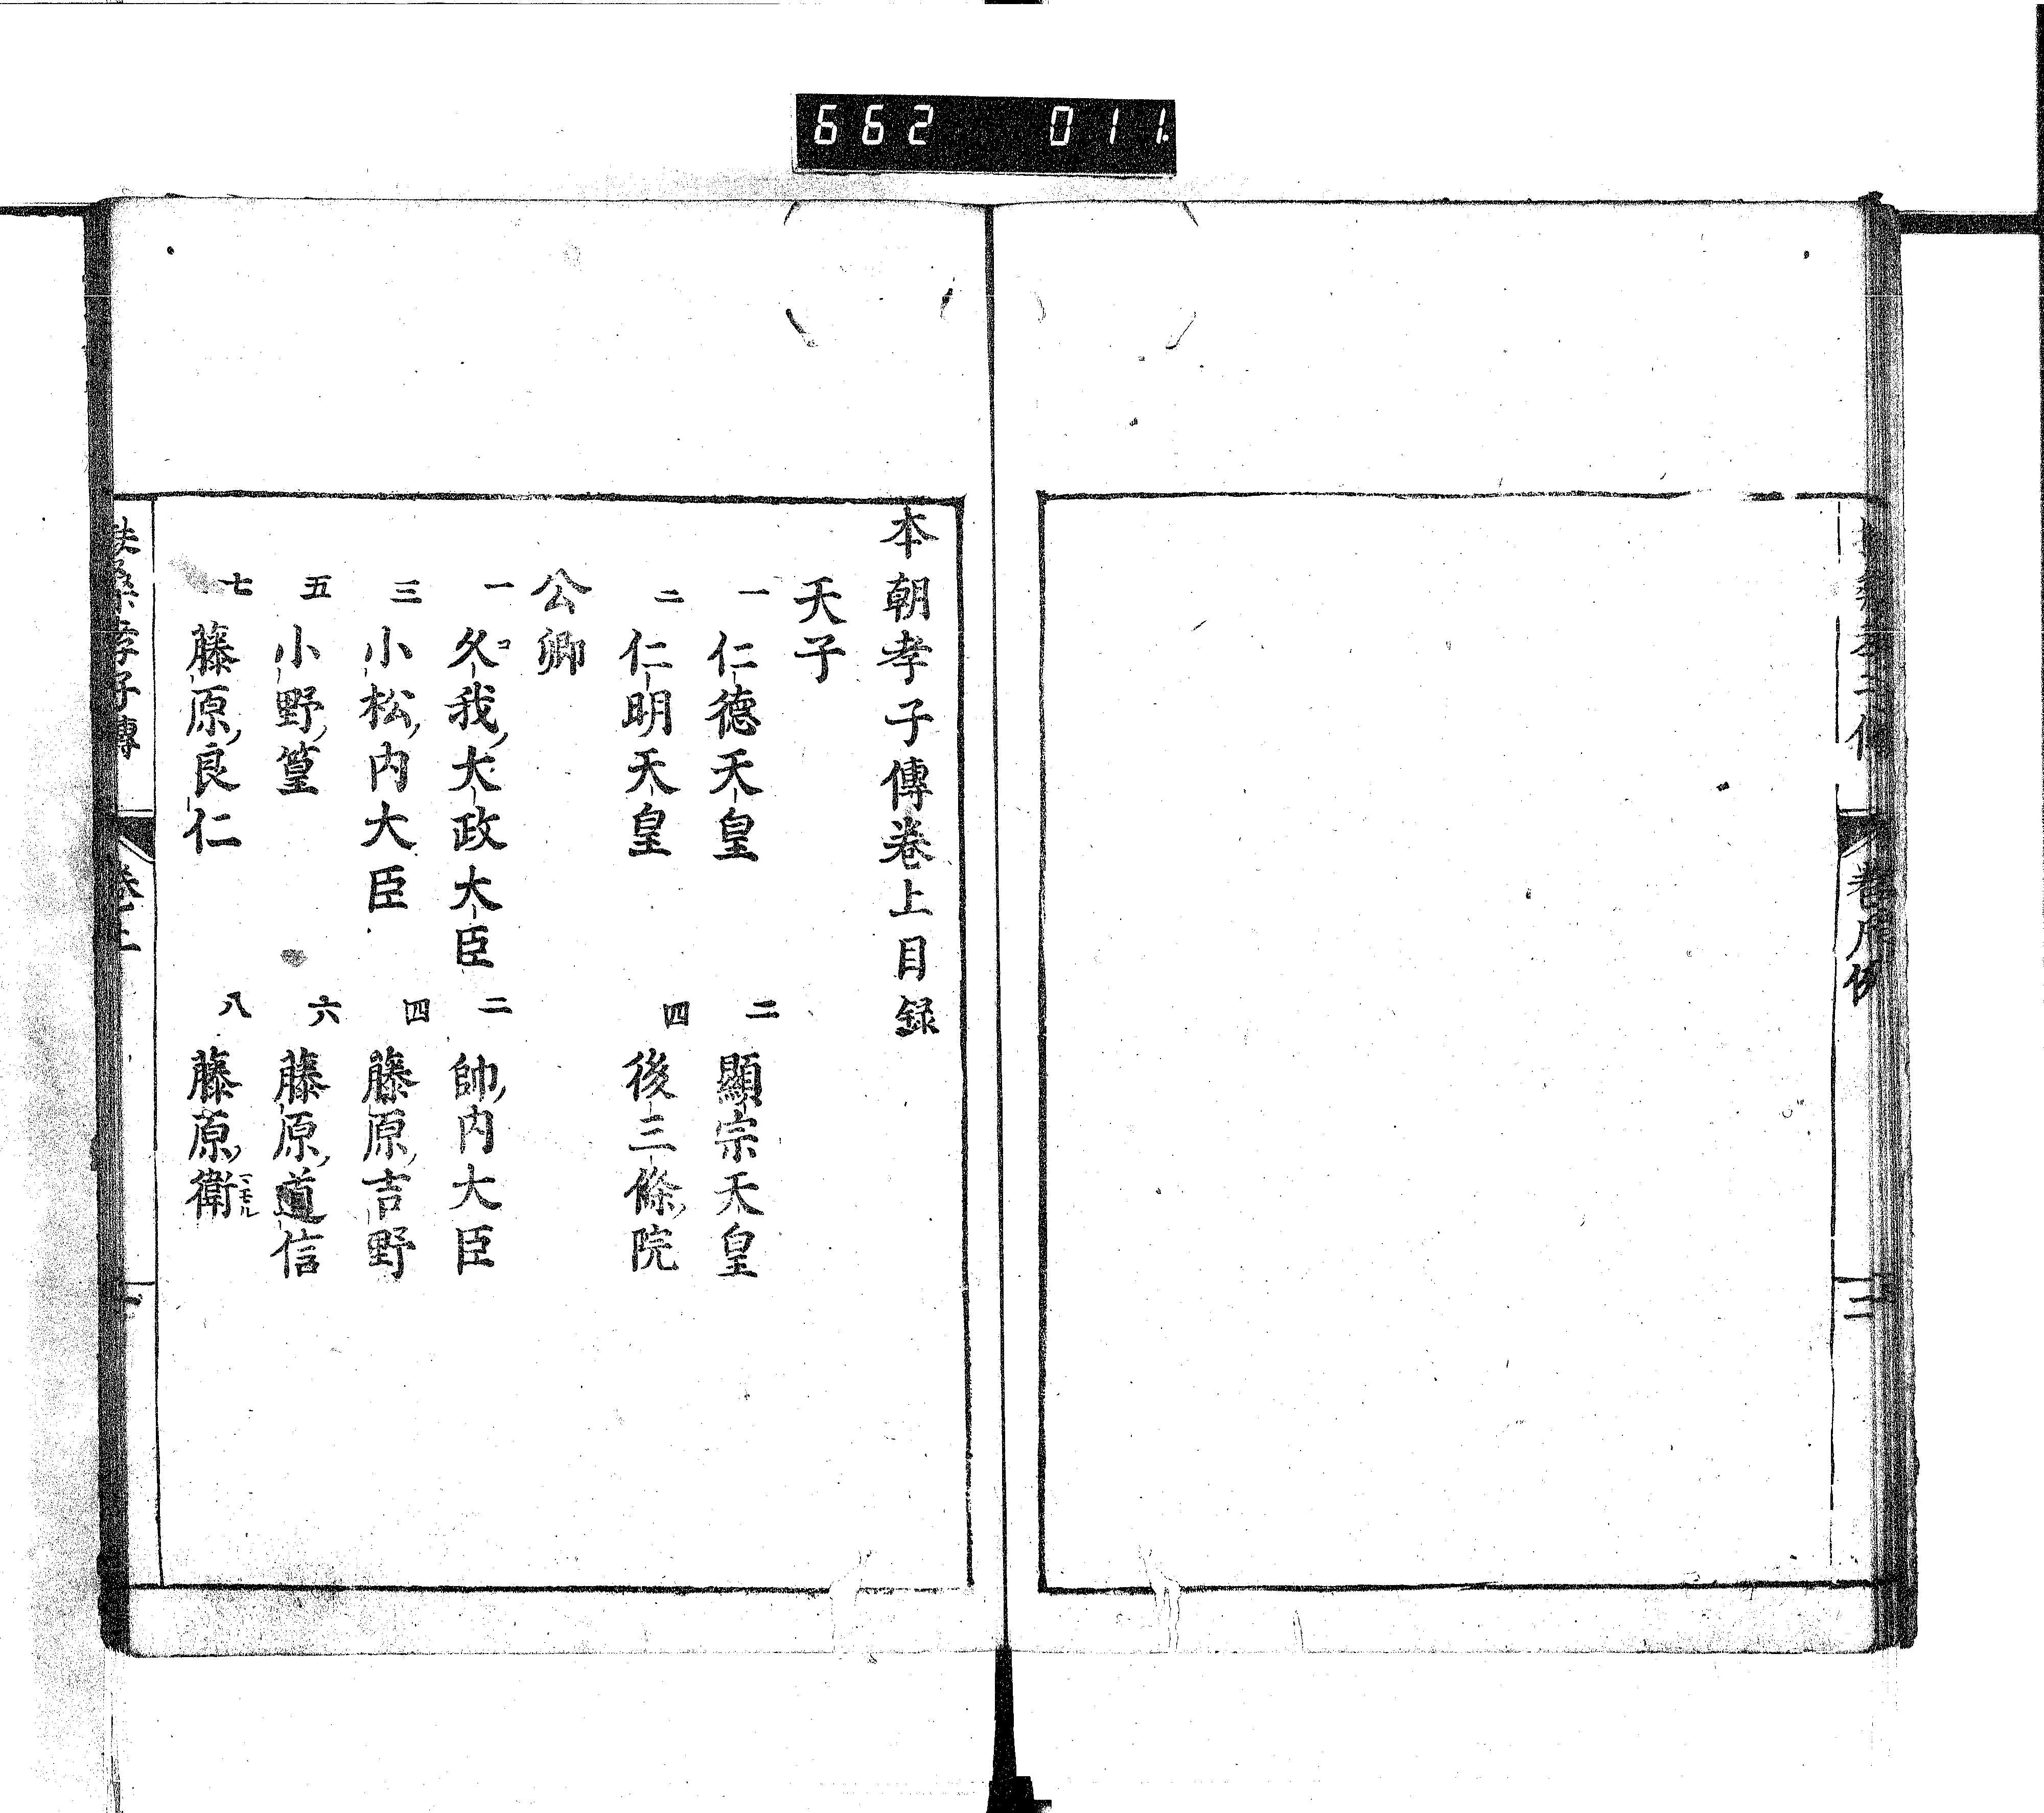 662 011
本朝孝子傳卷上目録
天子
一 仁德天皇 二 顯宗天皇
二 仁明天皇 四 後三條院
公卿
一 久コ我大政大臣 二 帥内大臣
三 小松内大臣 四 藤原吉野
五 小野篁 六 藤原道信
七 藤原良仁 八 藤原衛マモル
扶桑孝子傳 卷上
卷序例 二